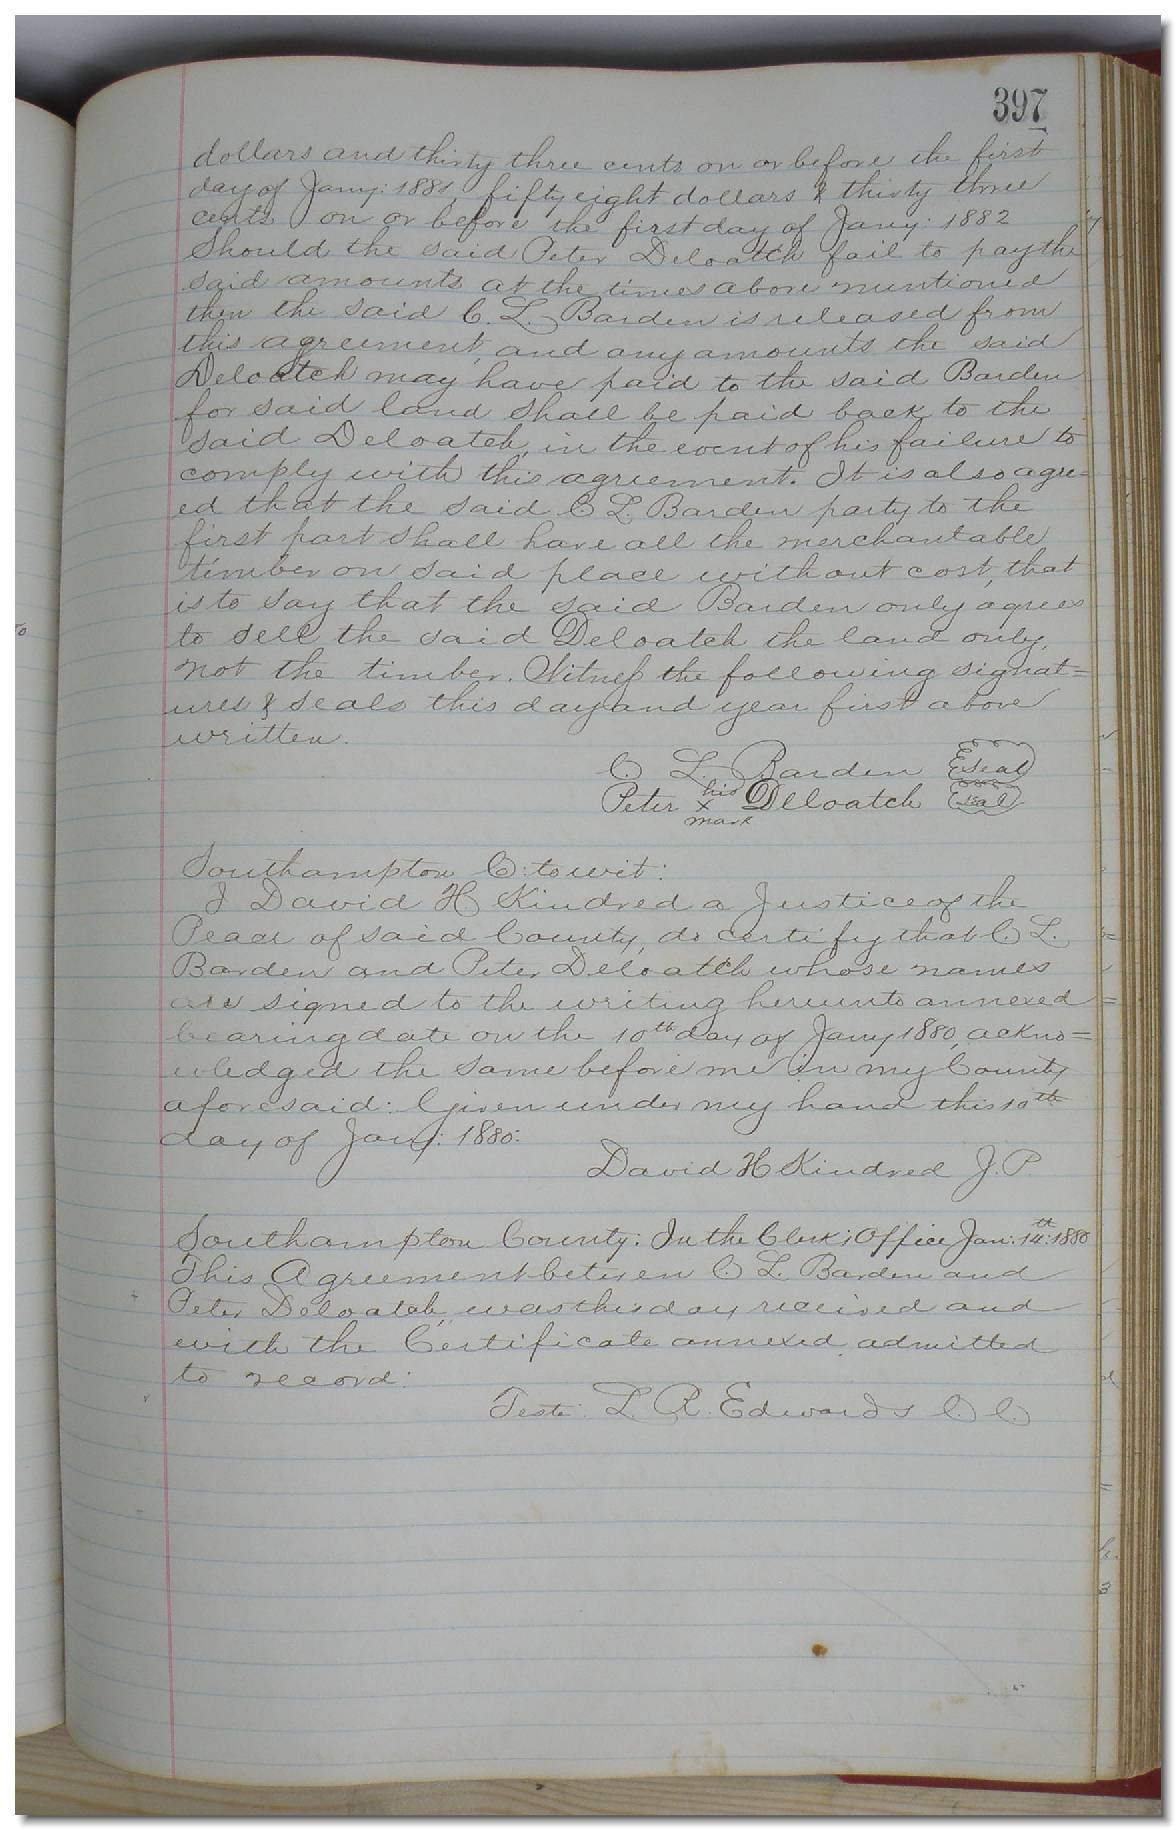 397
dollars and thirty three cents on or before the first
day of Jany: 1881, fifty eight dollars & thirty three
cents on or before the first day of Jany: 1882
Should the said Peter Deloatch fail to pay the
said amounts at the times above mentioned
then the said C. L. Barden is released from
this agreement, and any amounts the said
Deloatch may have paid to the said Barden
for said land shall be paid back to the
said Deloatch, in the event of his failure to
comply with this agreement. It is also agre=
ed that the said C L Barden party to the
first part shall have all the merchantable
timber on said place without cost, that
is to say that the said Barden only agrees
to sell the said Deloatch the land only,
not the timber. Witness the following signat=
ures & seals this day and year first above
written.
C. L. Barden Seal
his
Peter X Deloatch Seal
mark
Southampton C: to wit:
I David H Kindred a Justice of the
Peace of said County, do certify that C. L.
Barden and Peter Deloatch whose names
are signed to the writing hereunto annexed
bearing date on the 10th day of Jany 1880, ackno=
wledged the same before me in my County
aforesaid: Given under my hand this 10th
day of Jany: 1880:
David H Kindred J. P.
Southampton County: In the Clerk's Office Jan: 14th: 1880
This Agreement between C. L. Barden and
Peter Deloatch, was this day received and
with the Certificate annexed, admitted
to record:
Teste: L. R. Edwards C. C.